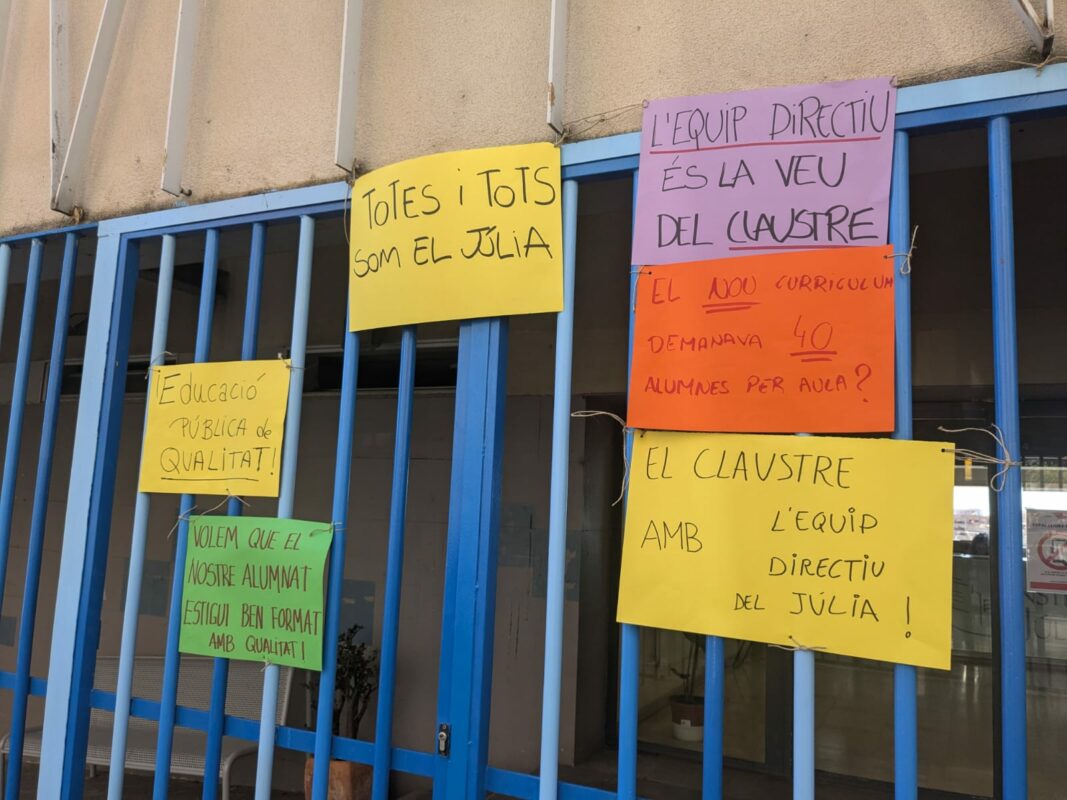 TOTES i TOTS
SOM EL JÚLIA
L'EQUIP DIRECTIU
ÉS LA VEU
DEL CLAUSTRE
EL NOU CURRICULUM
DEMANAVA 40
ALUMNES PER AULA?
EDUCACIÓ
PÚBLICA de
QUALITAT!
EL CLAUSTRE
AMB L'EQUIP
DIRECTIU
DEL JÚLIA!
VOLEM QUE EL
NOSTRE ALUMNAT
ESTIGUI BEN FORMAT
AMB QUALITAT!